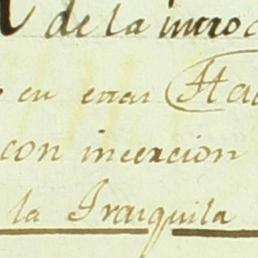 de la introd
en estas Hac
con incercion
la Iraiquila